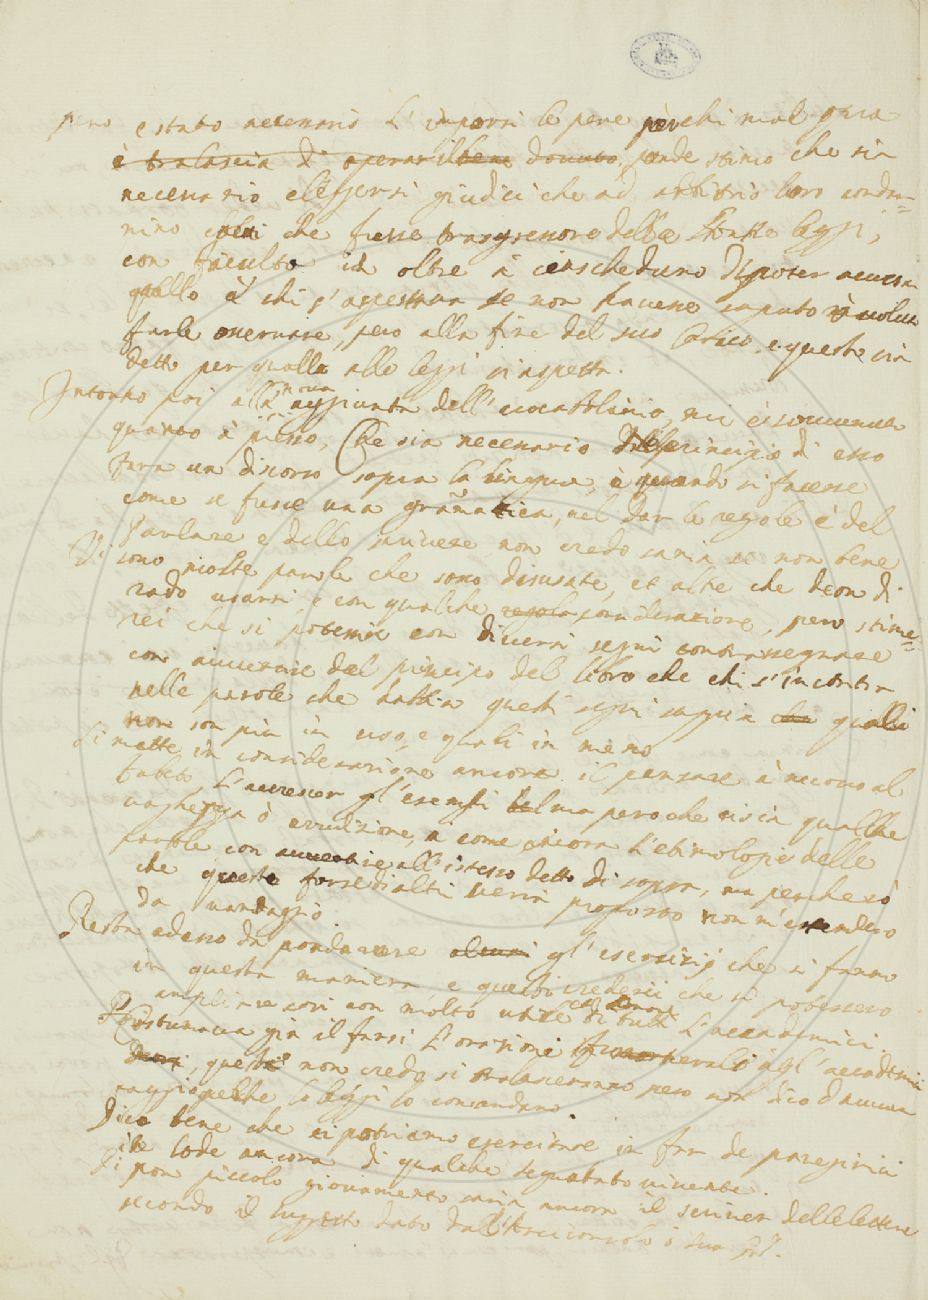 pero è stato necessario l'imporsi le pene perchi mal opera
è tralascia di operar il bene douuto, onde stimo che sia
necessario eleggersi giudici che ad arbitrio loro condan=
nino coloro che fusse trasgressore delle sudette leggi,
con facultà in oltre à ciascheduno di poter accusar
quello à chi s'aspettava se non havesse saputo ò voluto
farle osservare, pero alla fine del suo carico, e questo sia
detto per quello alle leggi si aspetta.
Intorno poi alla nova aggiunta dell'vocabbolario, mi è souuenuto
quanto à presso, Che sia necessario nel principio di esso
fara un discorso sopra la lingua, è quando si facesse
come se fusse una gramatica, nel dar le regole è del
parlare e dello scrivere non credo saria se non bene
Vi sono molte parole che sono disusate, et altre che deon di
rado usarsi, e con qualche regola considerazione, pero stime=
rei che si potessir con diversi segni contrassegnare
con auuertire del principio del libro che chi s'incontra
nelle parole che habbia questi segni sappia che quali
non son più in uso, e quali in meno
Si mette in considerazione ancora il pensare à
L'accrescer gl'esempi ma pero che vi sia qualche
vaghezza ò erudizione, come ancora l'etimologie delle
parole con auuertire all'istesso detto di sopra, ma perche sò
che questo forse di altri verrà proposto non m'estendero
da vantaggio.
Resta adesso da ponderare alcuni gl'esercizij che si fanno
in questa maniera e questi crederei che si potessero
ampliare cosi non molto utile di tutti L'accademici.
Costumava gia il farsi l'orazioni funerali agl'accademici
, queste non credo si tralasceranno pero non dico d'auuan
taggio perche le leggi lo comandano.
Dico bene che si potriano esercitare in far de panegirici
in lode ancora di qualche segnalato vivente.
Di non piccolo giovamento saria ancora il scriver delle lettere
secondo il suggetto dato dall'Arciconsolo ò suo